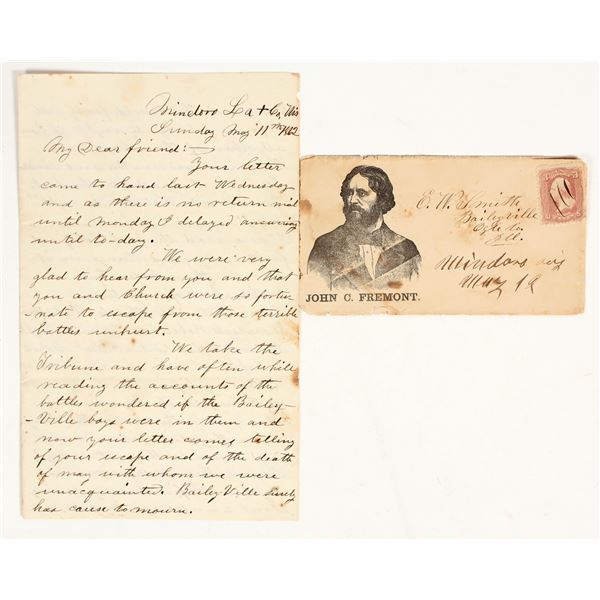 Mindoro La + Co, Wis
Sunday May 11th 1862
My Dear friend:-
Your letter
came to hand last Wednesday
and as there is no return mail
until monday I delayed answering
until to-day.
We were very
glad to hear from you and that
you and Church were so fortu-
nate to escape from those terrible
battles unhurt.
We take the
Tribune and have often while
reading the accounts of the
battles wondered if the Bailey-
-Ville boys were in them and
now your letter comes telling
of your escape and of the death
of many with whom we were
unacquainted. Bailey Ville surely
has cause to mourn.
E. W. Smith
Baileyville
Ogle Co
Ill.
Mindoro Wis
May 12
JOHN C. FREMONT.